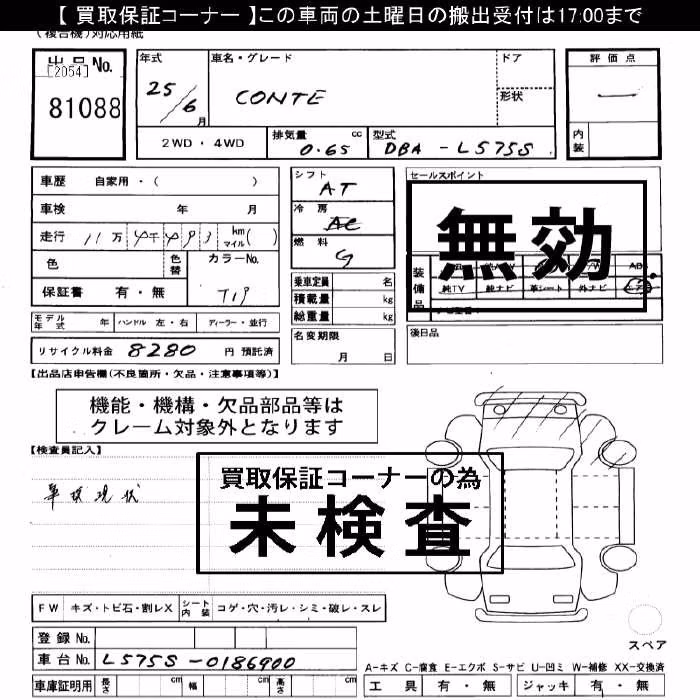 【 買取保証コーナー 】この車両の土曜日の搬出受付は17:00まで
(複合機)対応用紙
出品No.
[2054]
81088
年式 25/6月
車名・グレード CONTE
ドア
形状
2WD・4WD
排気量 0.65 cc
型式 DBA-L575S
評価点
一
内装
車歴 自家用・( )
車検 年 月
走行 11万 4千 4 9 3 km マイル( )
色 色替 カラーNo.
保証書 有・無 T19
モデル年式 年 ハンドル 左・右 ディーラー・並行
リサイクル料金 8280 円 預託済
シフト AT
冷房 AC
燃料 G
乗車定員 名
積載量 kg
総重量 kg
名変期限
月 日
セールスポイント
無効
装備品
純TV 純ナビ 革シート 外ナビ
後日品
【出品店申告欄(不良箇所・欠品・注意事項等)】
機能・機構・欠品部品等は
クレーム対象外となります
【検査員記入】
買取保証コーナーの為
未検査
現状
FW キズ・トビ石・割レX シート内装 コゲ・穴・汚レ・シミ・破レ・スレ
登録No.
車台No. L575S-0186900
車庫証明用 長さ cm 幅 cm 高さ cm
スペア
A-キズ C-腐食 E-エクボ S-サビ U-凹ミ W-補修 XX-交換済
工具 有・無 ジャッキ 有・無